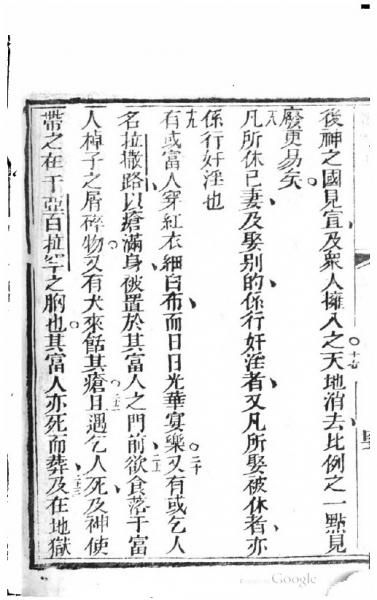 後神之國見宣及衆人擁入之十七天地消去比例之一點見
廢更易矣
十八凡所休已妻及娶别的係行奸淫者又凡所娶被休者亦
係行奸淫也
十九有或富人穿紅衣細白布而日日光華宴樂二十又有或乞人
名拉撒路以瘡滿身被置於其富人之門前二一欲食落于富
人棹子之屑碎物又有犬來餂其瘡二二且遇乞人死及神使
帶之在于亞百拉罕之胸也其富人亦死而葬二三及在地獄
Google